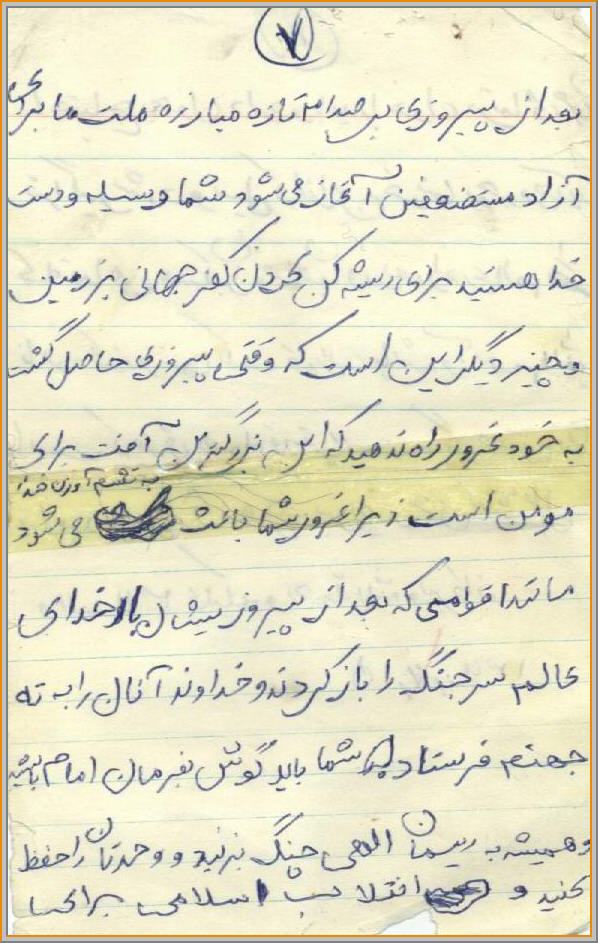 ۷
بعد از پیروزی بر صدام تازه مبارزه ملت ما برای
آزاد مستضعفین آغاز می شود شما وسیله و دست
خدا هستید برای ریشه کن کردن کفر جهانی بر زمین
و چیز دیگر این است که وقتی پیروزی حاصل گشت
به خود غرور راه ندهید که این بزرگترین آفت برای
مومن است زیرا غرور شما باعث به خشم آوردن خدا می شود
مانند اقوامی که بعد از پیروزیشان با خدای
عالم سر جنگ را باز کردند و خداوند آنان را به ته
جهنم فرستاد شما باید گوش بفرمان امام باشید
و همیشه به ریسمان الهی چنگ بزنید و وحدتتان را حفظ
کنید و انقلاب اسلامی برای